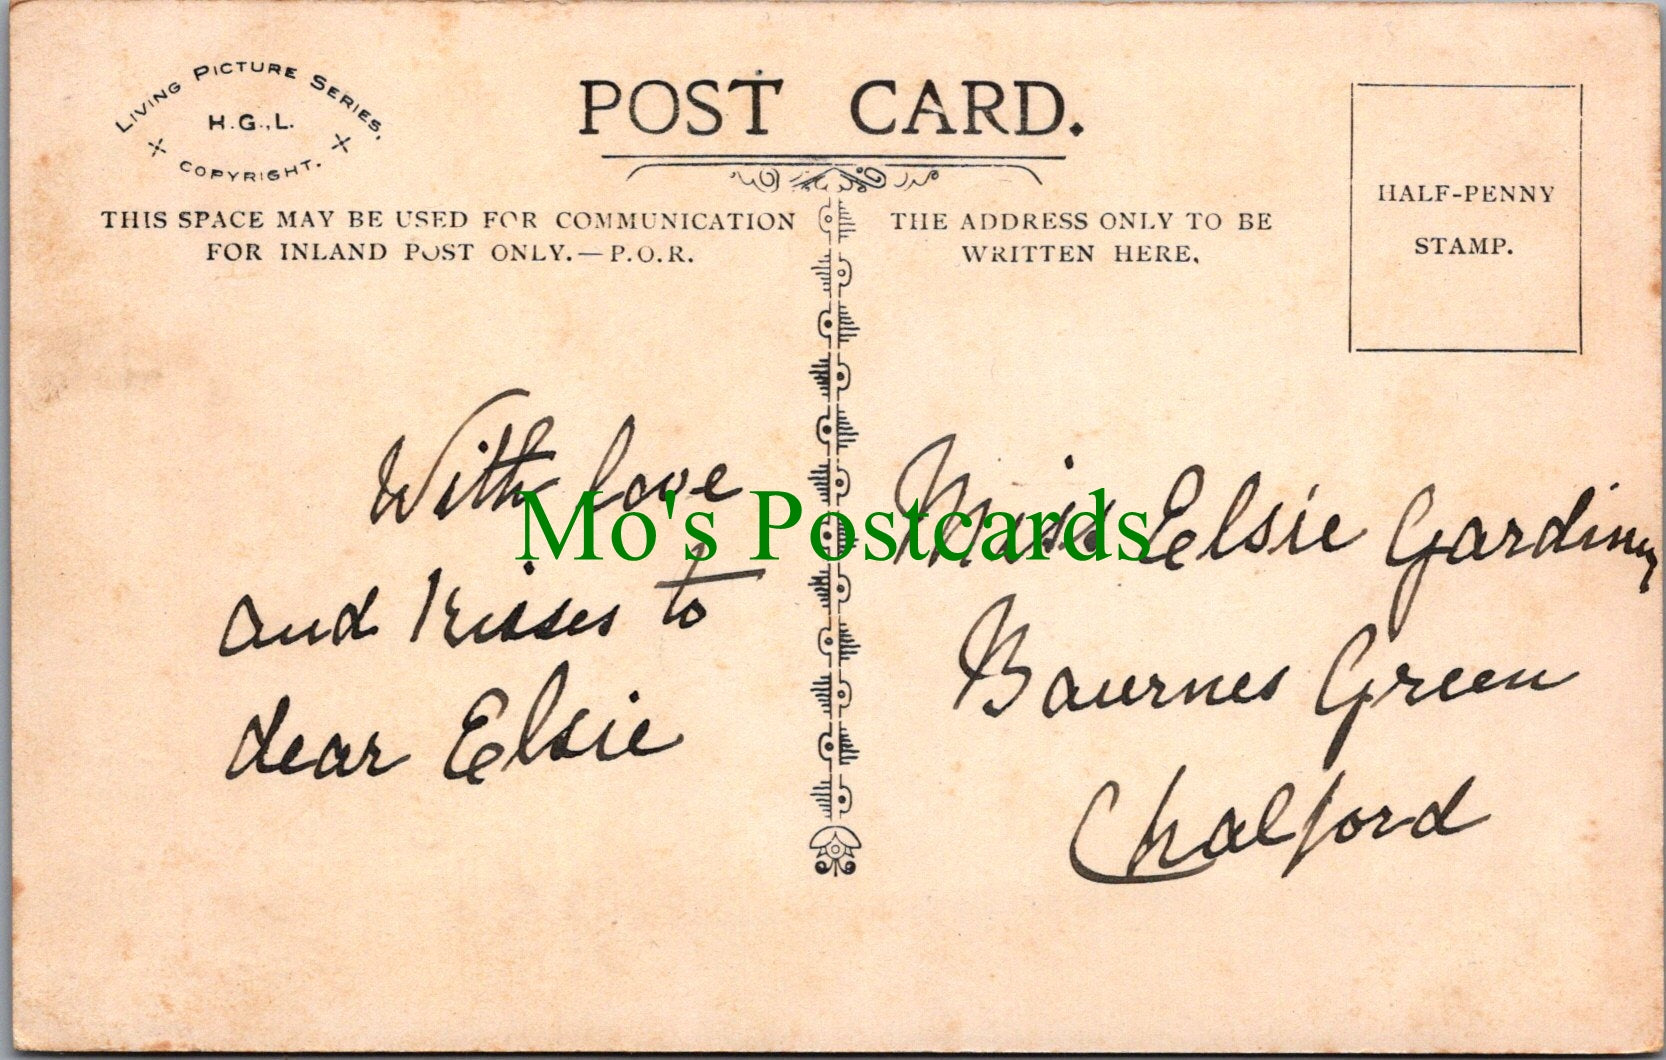 LIVING PICTURE SERIES,
H.G.,L.
COPYRIGHT.
POST CARD.
THIS SPACE MAY BE USED FOR COMMUNICATION
FOR INLAND POST ONLY.—P.O.R.
THE ADDRESS ONLY TO BE
WRITTEN HERE.
HALF-PENNY
STAMP.
With love
and Kisses to
dear Elsie
Miss Elsie Gardiner
Bournes Green
Chalford
Mo's Postcards